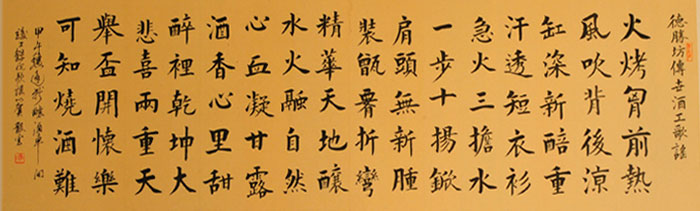 德勝坊傳世酒工歌謠
火烤胷前熱
風吹背後涼
缸深新醅重
汗透短衣衫
急火三擔水
一步十揚鍁
肩頭無新腫
裝甑要折彎
精華天地釀
水火融自然
心血凝甘露
酒香心里甜
醉裡乾坤大
悲喜兩重天
舉盃開懷樂
可知燒酒難
甲午